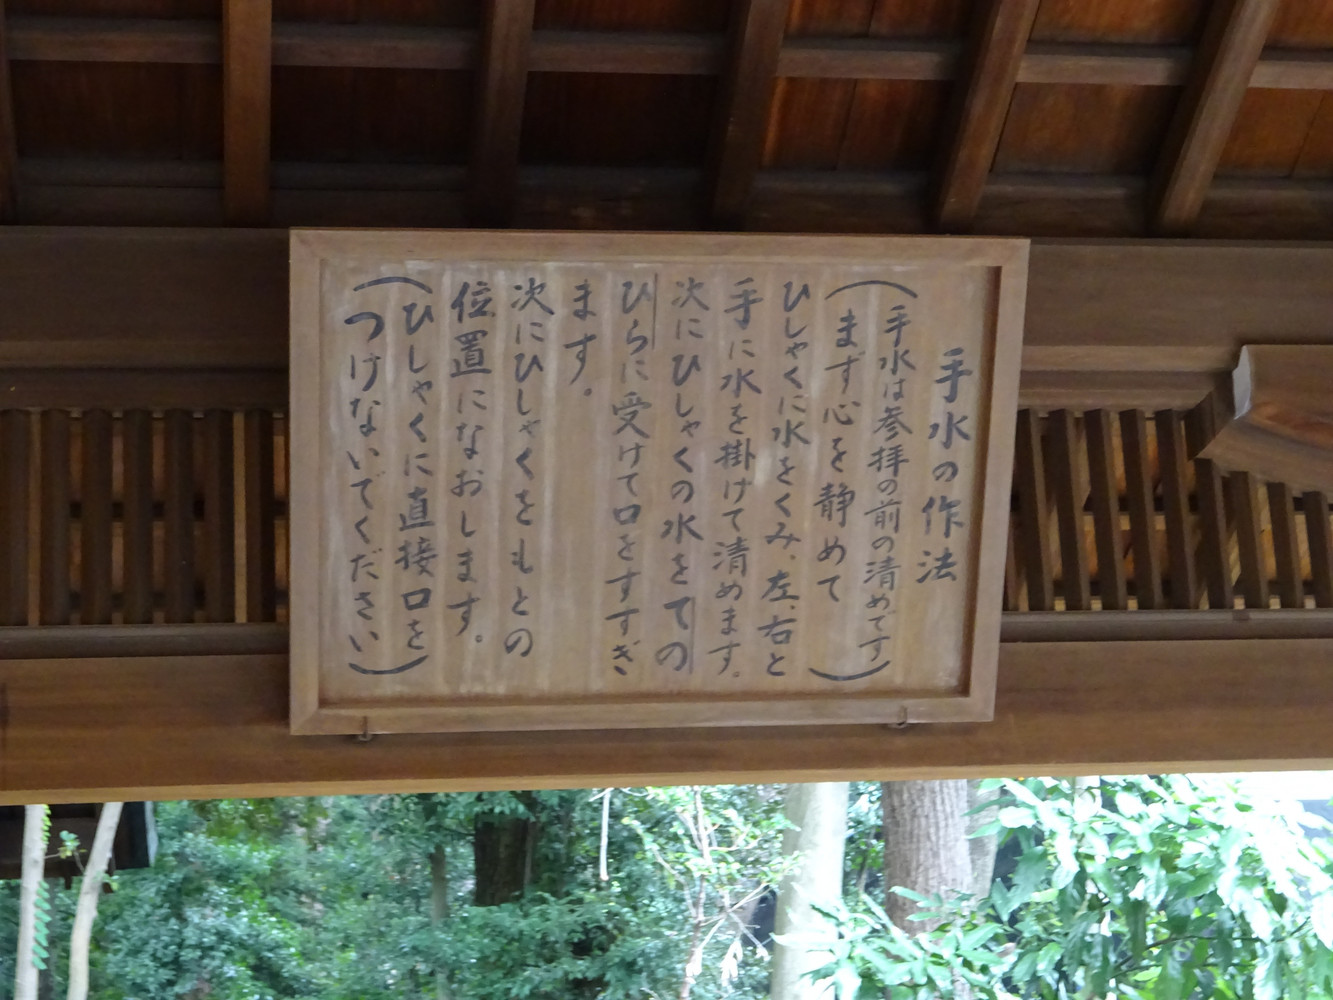 手水の作法
(手水は参拝の前の清めです
まず心を静めて)
ひしゃくに水をくみ、左、右と
手に水を掛けて清めます。
次にひしゃくの水をての
ひらに受けて口をすすぎ
ます。
次にひしゃくをもとの
位置になおします。
(ひしゃくに直接口を
つけないでください)